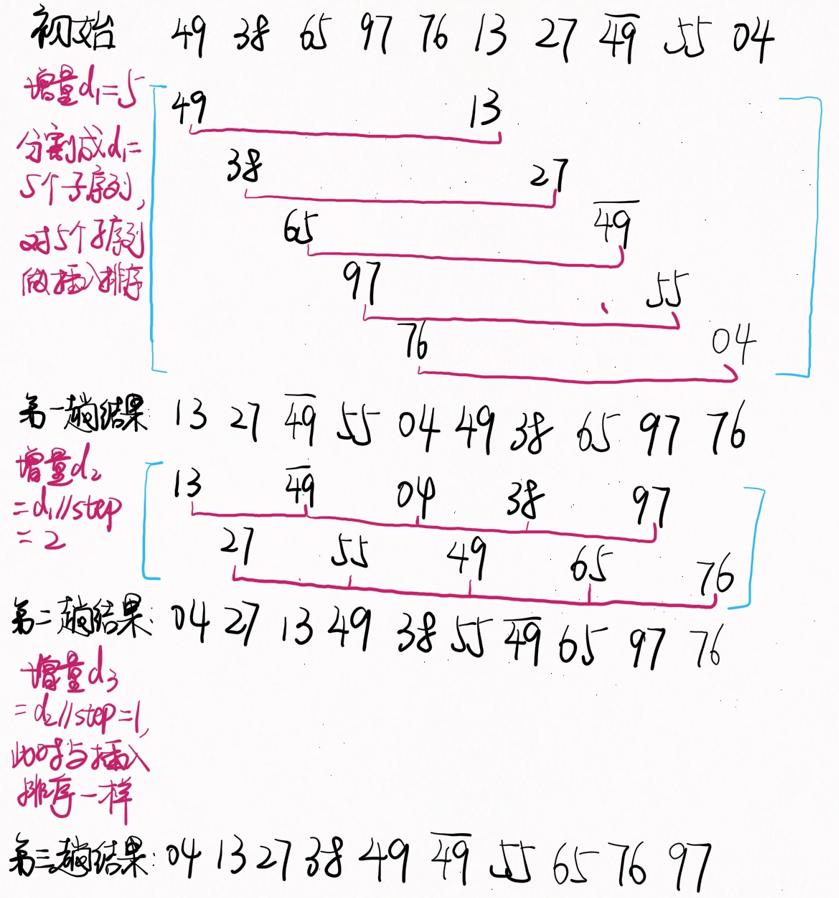 初始 49 38 65 97 76 13 27 4̅9̅ 55 04
增量d₁=5
49 13
分割成d₁=
38 27
5个子序列,
65 4̅9̅
对5个子序列
做插入排序
97 55
76 04
第一趟结果: 13 27 4̅9̅ 55 04 49 38 65 97 76
增量d₂
13 4̅9̅ 04 38 97
=d₁//step
=2
27 55 49 65 76
第二趟结果: 04 27 13 49 38 55 4̅9̅ 65 97 76
增量d₃
=d₂//step=1,
此时与插入
排序一样
第三趟结果: 04 13 27 38 49 4̅9̅ 55 65 76 97